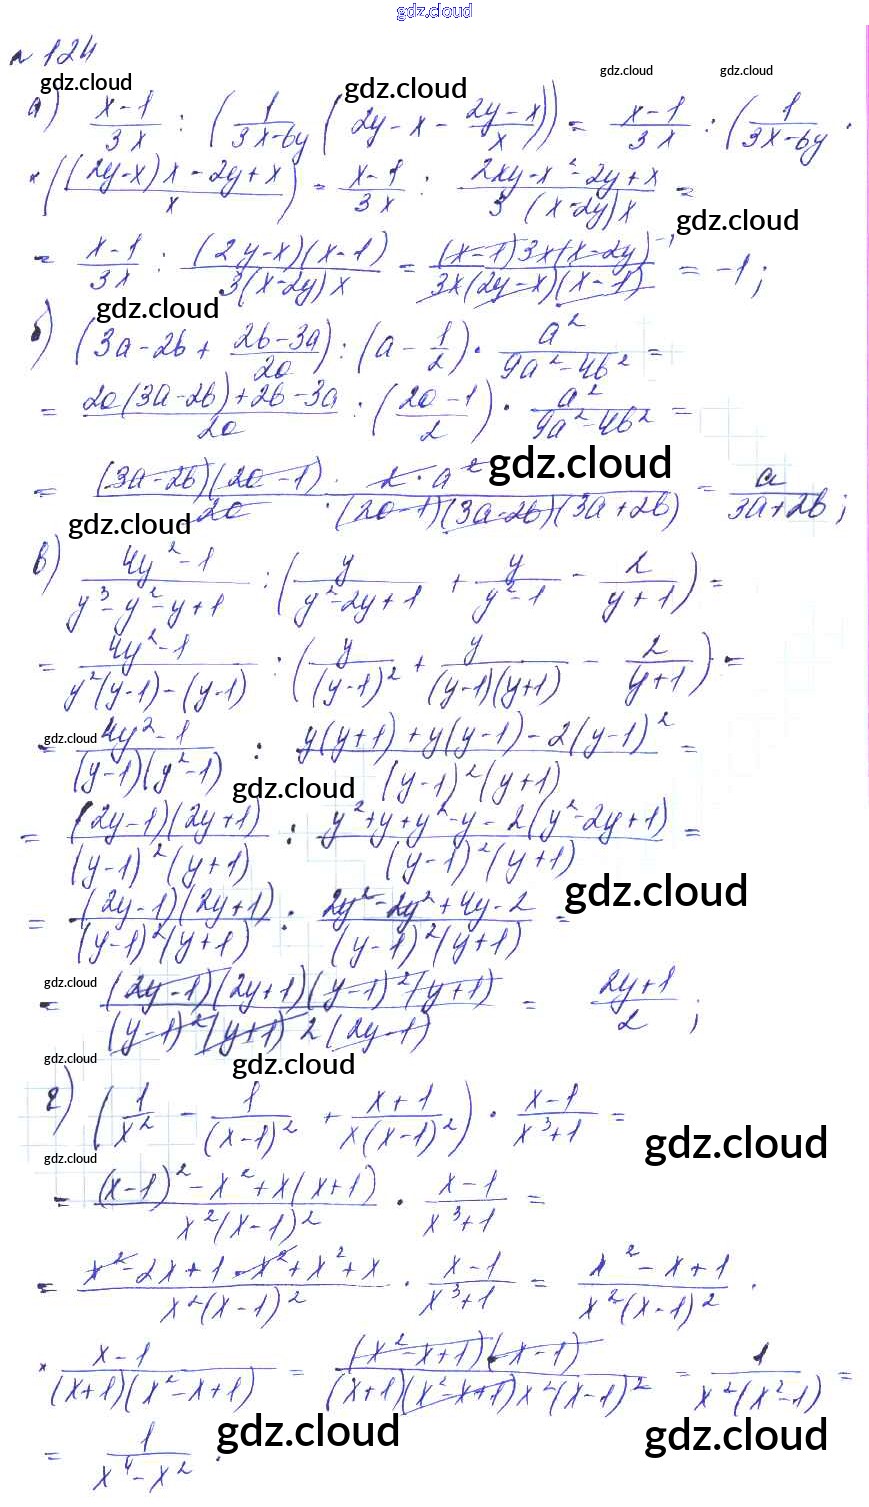 gdz.cloud
№ 124
gdz.cloud gdz.cloud gdz.cloud gdz.cloud
а) (x-1)/(3x) : (1/(3x-6y) (2y-x - (2y-x)/x)) = (x-1)/(3x) : (1/(3x-6y) ·
× ((2y-x)x - 2y+x)/x) = (x-1)/(3x) : (2xy-x²-2y+x)/(3(x-2y)x) =
gdz.cloud
= (x-1)/(3x) : ((2y-x)(x-1))/(3(x-2y)x) = ((x-1)3x(x-2y)⁻¹)/(3x(2y-x)(x-1)) = -1;
gdz.cloud
б) (3a-2b + (2b-3a)/(2a)) : (a - 1/2) · a²/(9a²-4b²) =
= (2a(3a-2b)+2b-3a)/(2a) : ((2a-1)/2) · a²/(9a²-4b²) =
gdz.cloud
= ((3a-2b)(2a-1))/(2a) · (2·a²)/((2a-1)(3a-2b)(3a+2b)) = a/(3a+2b);
gdz.cloud
в) (4y²-1)/(y³-y²-y+1) : (y/(y²-2y+1) + y/(y²-1) - 2/(y+1)) =
= (4y²-1)/(y²(y-1)-(y-1)) : (y/(y-1)² + y/((y-1)(y+1)) - 2/(y+1)) =
gdz.cloud
= (4y²-1)/((y-1)(y²-1)) : (y(y+1)+y(y-1)-2(y-1)²)/((y-1)²(y+1)) =
gdz.cloud
= ((2y-1)(2y+1))/((y-1)²(y+1)) : (y²+y+y²-y-2(y²-2y+1))/((y-1)²(y+1)) =
gdz.cloud
= ((2y-1)(2y+1))/((y-1)²(y+1)) : (2y²-2y²+4y-2)/((y-1)²(y+1)) =
gdz.cloud
= ((2y-1)(2y+1)(y-1)²(y+1))/((y-1)²(y+1)2(2y-1)) = (2y+1)/2;
gdz.cloud gdz.cloud
г) (1/x² - 1/(x-1)² + (x+1)/(x(x-1)²)) · (x-1)/(x³+1) =
gdz.cloud
gdz.cloud
= ((x-1)²-x²+x(x+1))/(x²(x-1)²) · (x-1)/(x³+1) =
= (x²-2x+1-x²+x²+x)/(x²(x-1)²) · (x-1)/(x³+1) = (x²-x+1)/(x²(x-1)²) ·
× (x-1)/((x+1)(x²-x+1)) = ((x²-x+1)(x-1))/((x+1)(x²-x+1)x²(x-1)²) = 1/(x²(x²-1)) =
gdz.cloud gdz.cloud
= 1/(x⁴-x²).